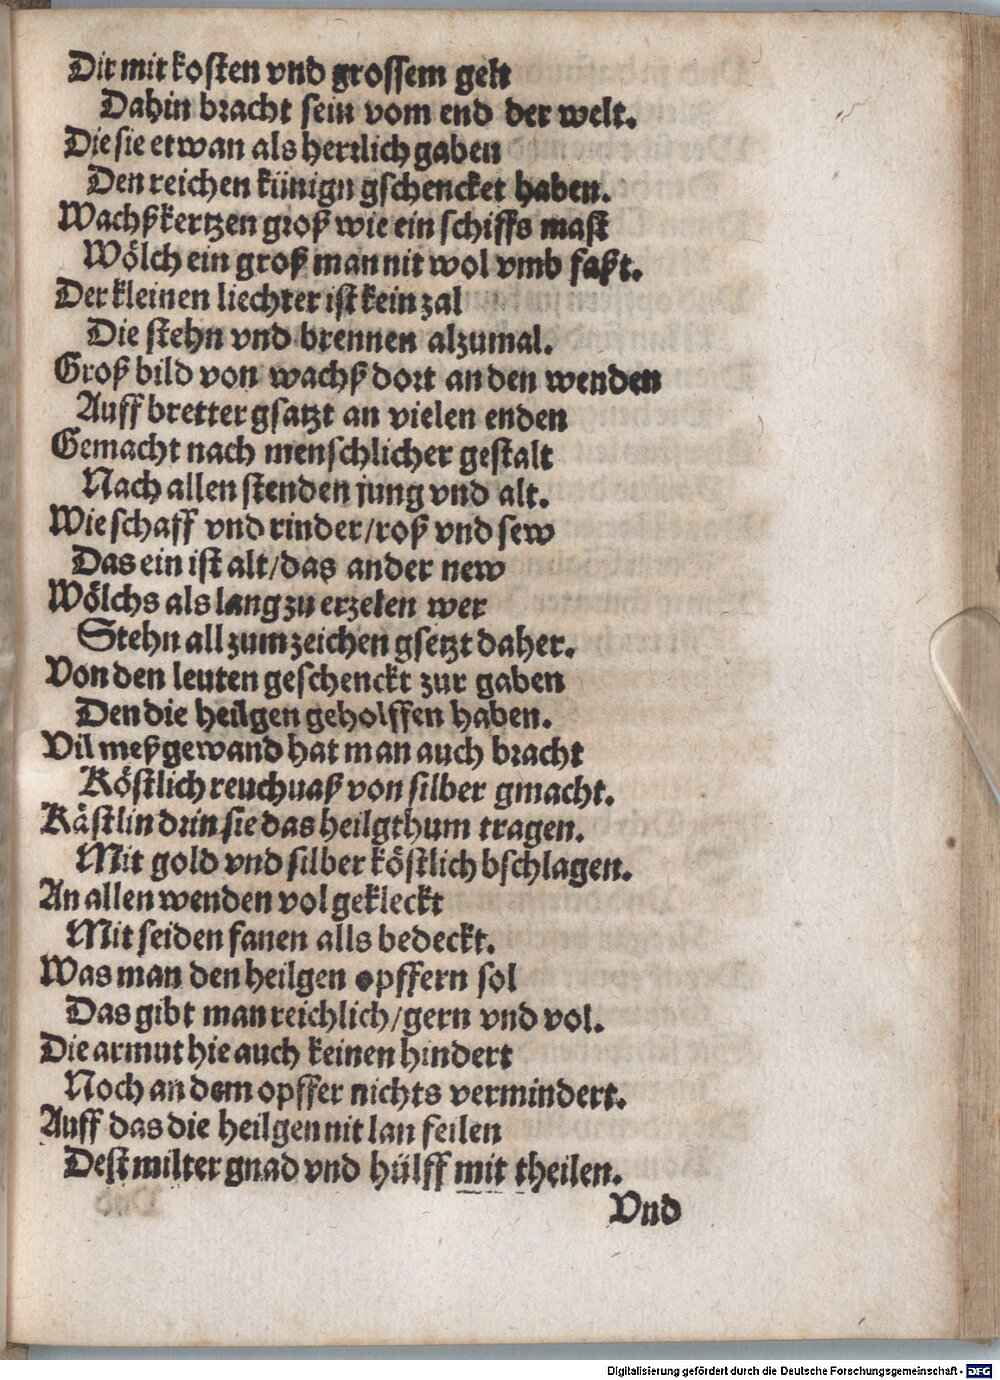 Dir mit kosten vnd grossem gelt
Dahin bracht sein vom end der welt.
Die sie etwan als herrlich gaben
Den reichen künign gschencket haben.
Wachßkertzen groß wie ein schiffs mast
Wölch ein groß man nit wol vmb faßt.
Der kleinen liechter ist kein zal
Die stehn vnd brennen alzumal.
Groß bild von wachß dort an den wenden
Auff bretter gsatzt an vielen enden
Gemacht nach menschlicher gestalt
Nach allen stenden jung vnd alt.
Wie schaff vnd rinder/roß vnd sew
Das ein ist alt/das ander new
Wölchs als lang zu erzelen wer
Stehn all zum zeichen gsetzt daher.
Von den leuten geschenckt zur gaben
Den die heilgen geholffen haben.
Vil meßgewand hat man auch bracht
Köstlich reuchuaß von silber gmacht.
Kästlin drin sie das heilgthum tragen.
Mit gold vnd silber köstlich bschlagen.
An allen wenden vol gekleckt
Mit seiden fanen alls bedeckt.
Was man den heilgen opffern sol
Das gibt man reichlich/gern vnd vol.
Die armut hie auch keinen hindert
Noch an dem opffer nichts vermindert.
Auff das die heilgen nit lan feilen
Dest milter gnad vnd hülff mit theilen.
Vnd
Digitalisierung gefördert durch die Deutsche Forschungsgemeinschaft - DFG